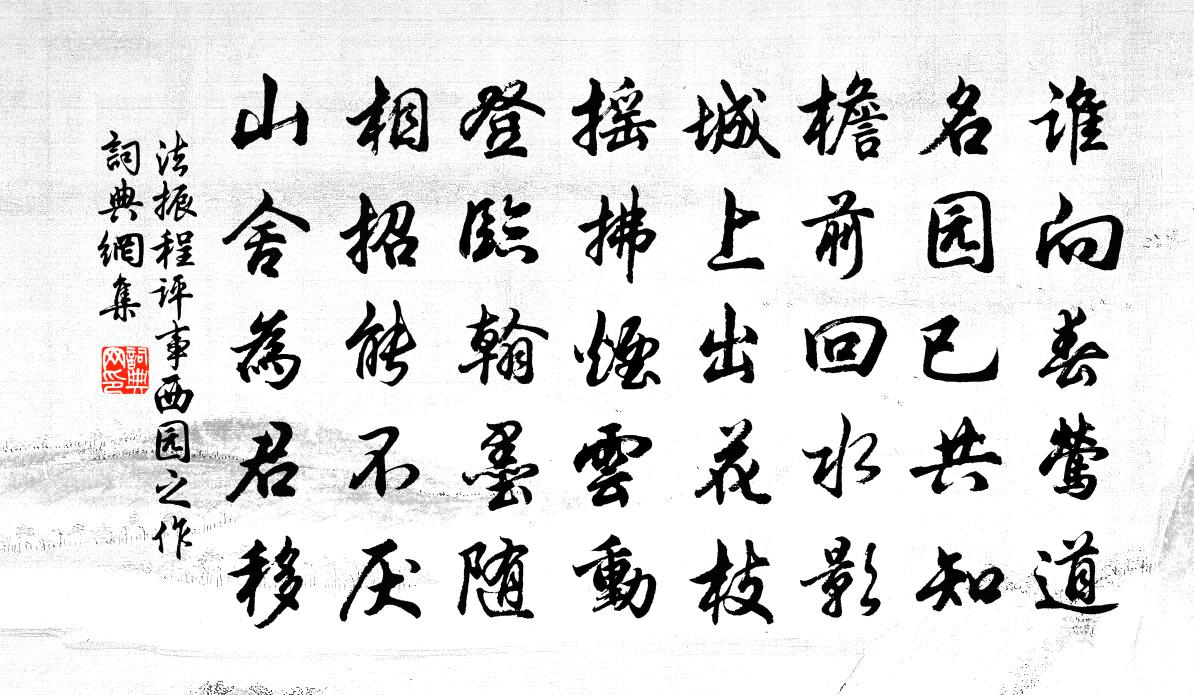 谁向春莺道
名园已共知
檐前回水影
城上出花枝
摇拂煙雲動
登臨翰墨随
相招能不厌
山舍為君移
法振程评事西园之作
詞典網集
詞典网印